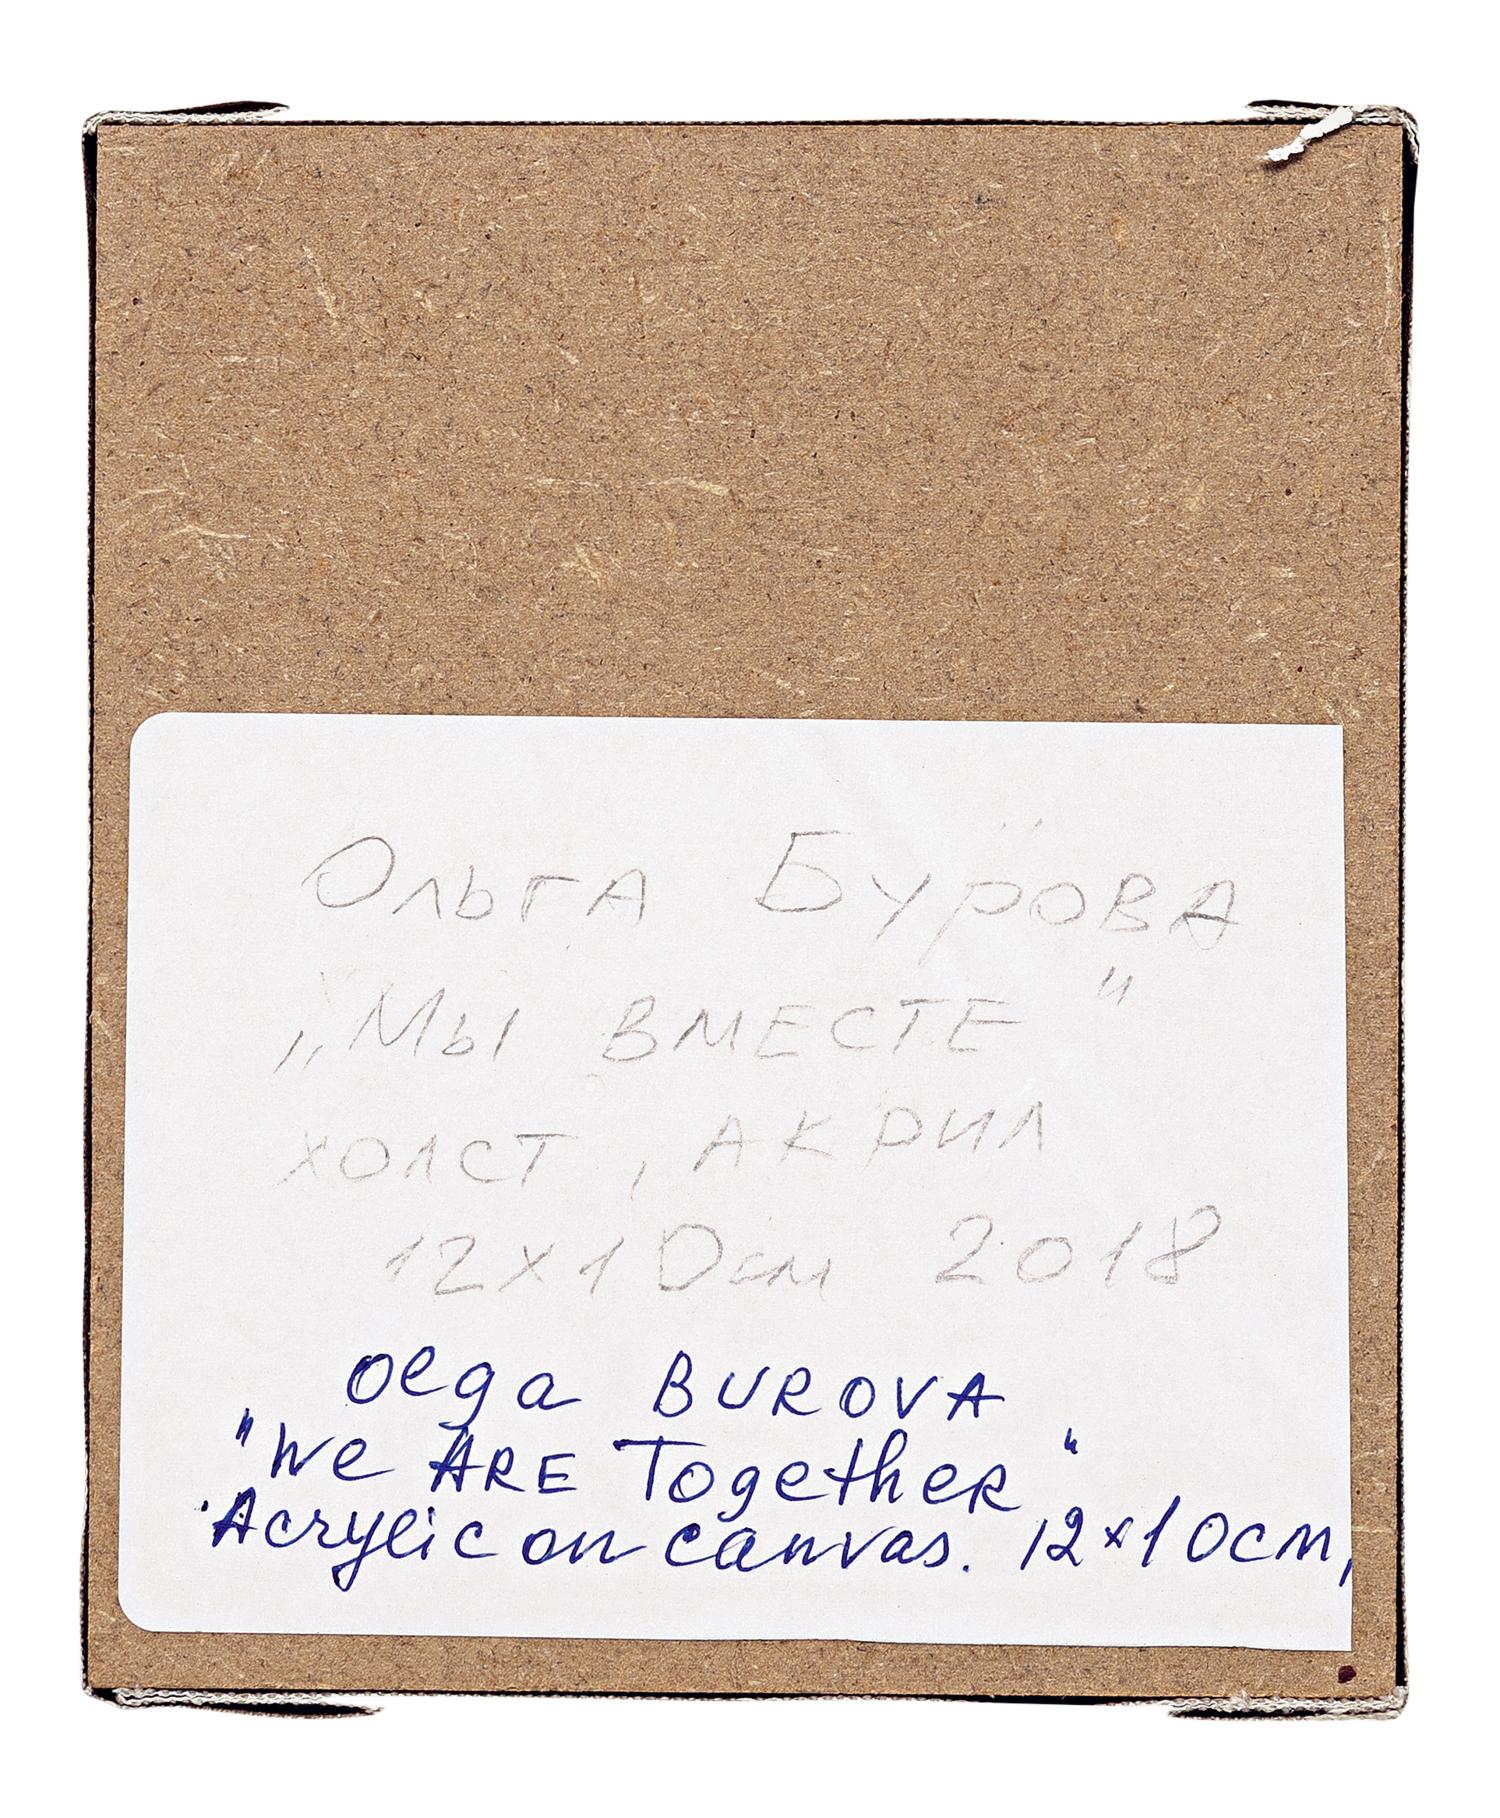 Ольга Бурова
„Мы вместе"
холст, акрил
12х10см 2018
Olga BUROVA
"We ARE Together"
Acrylic on canvas. 12×10cm,